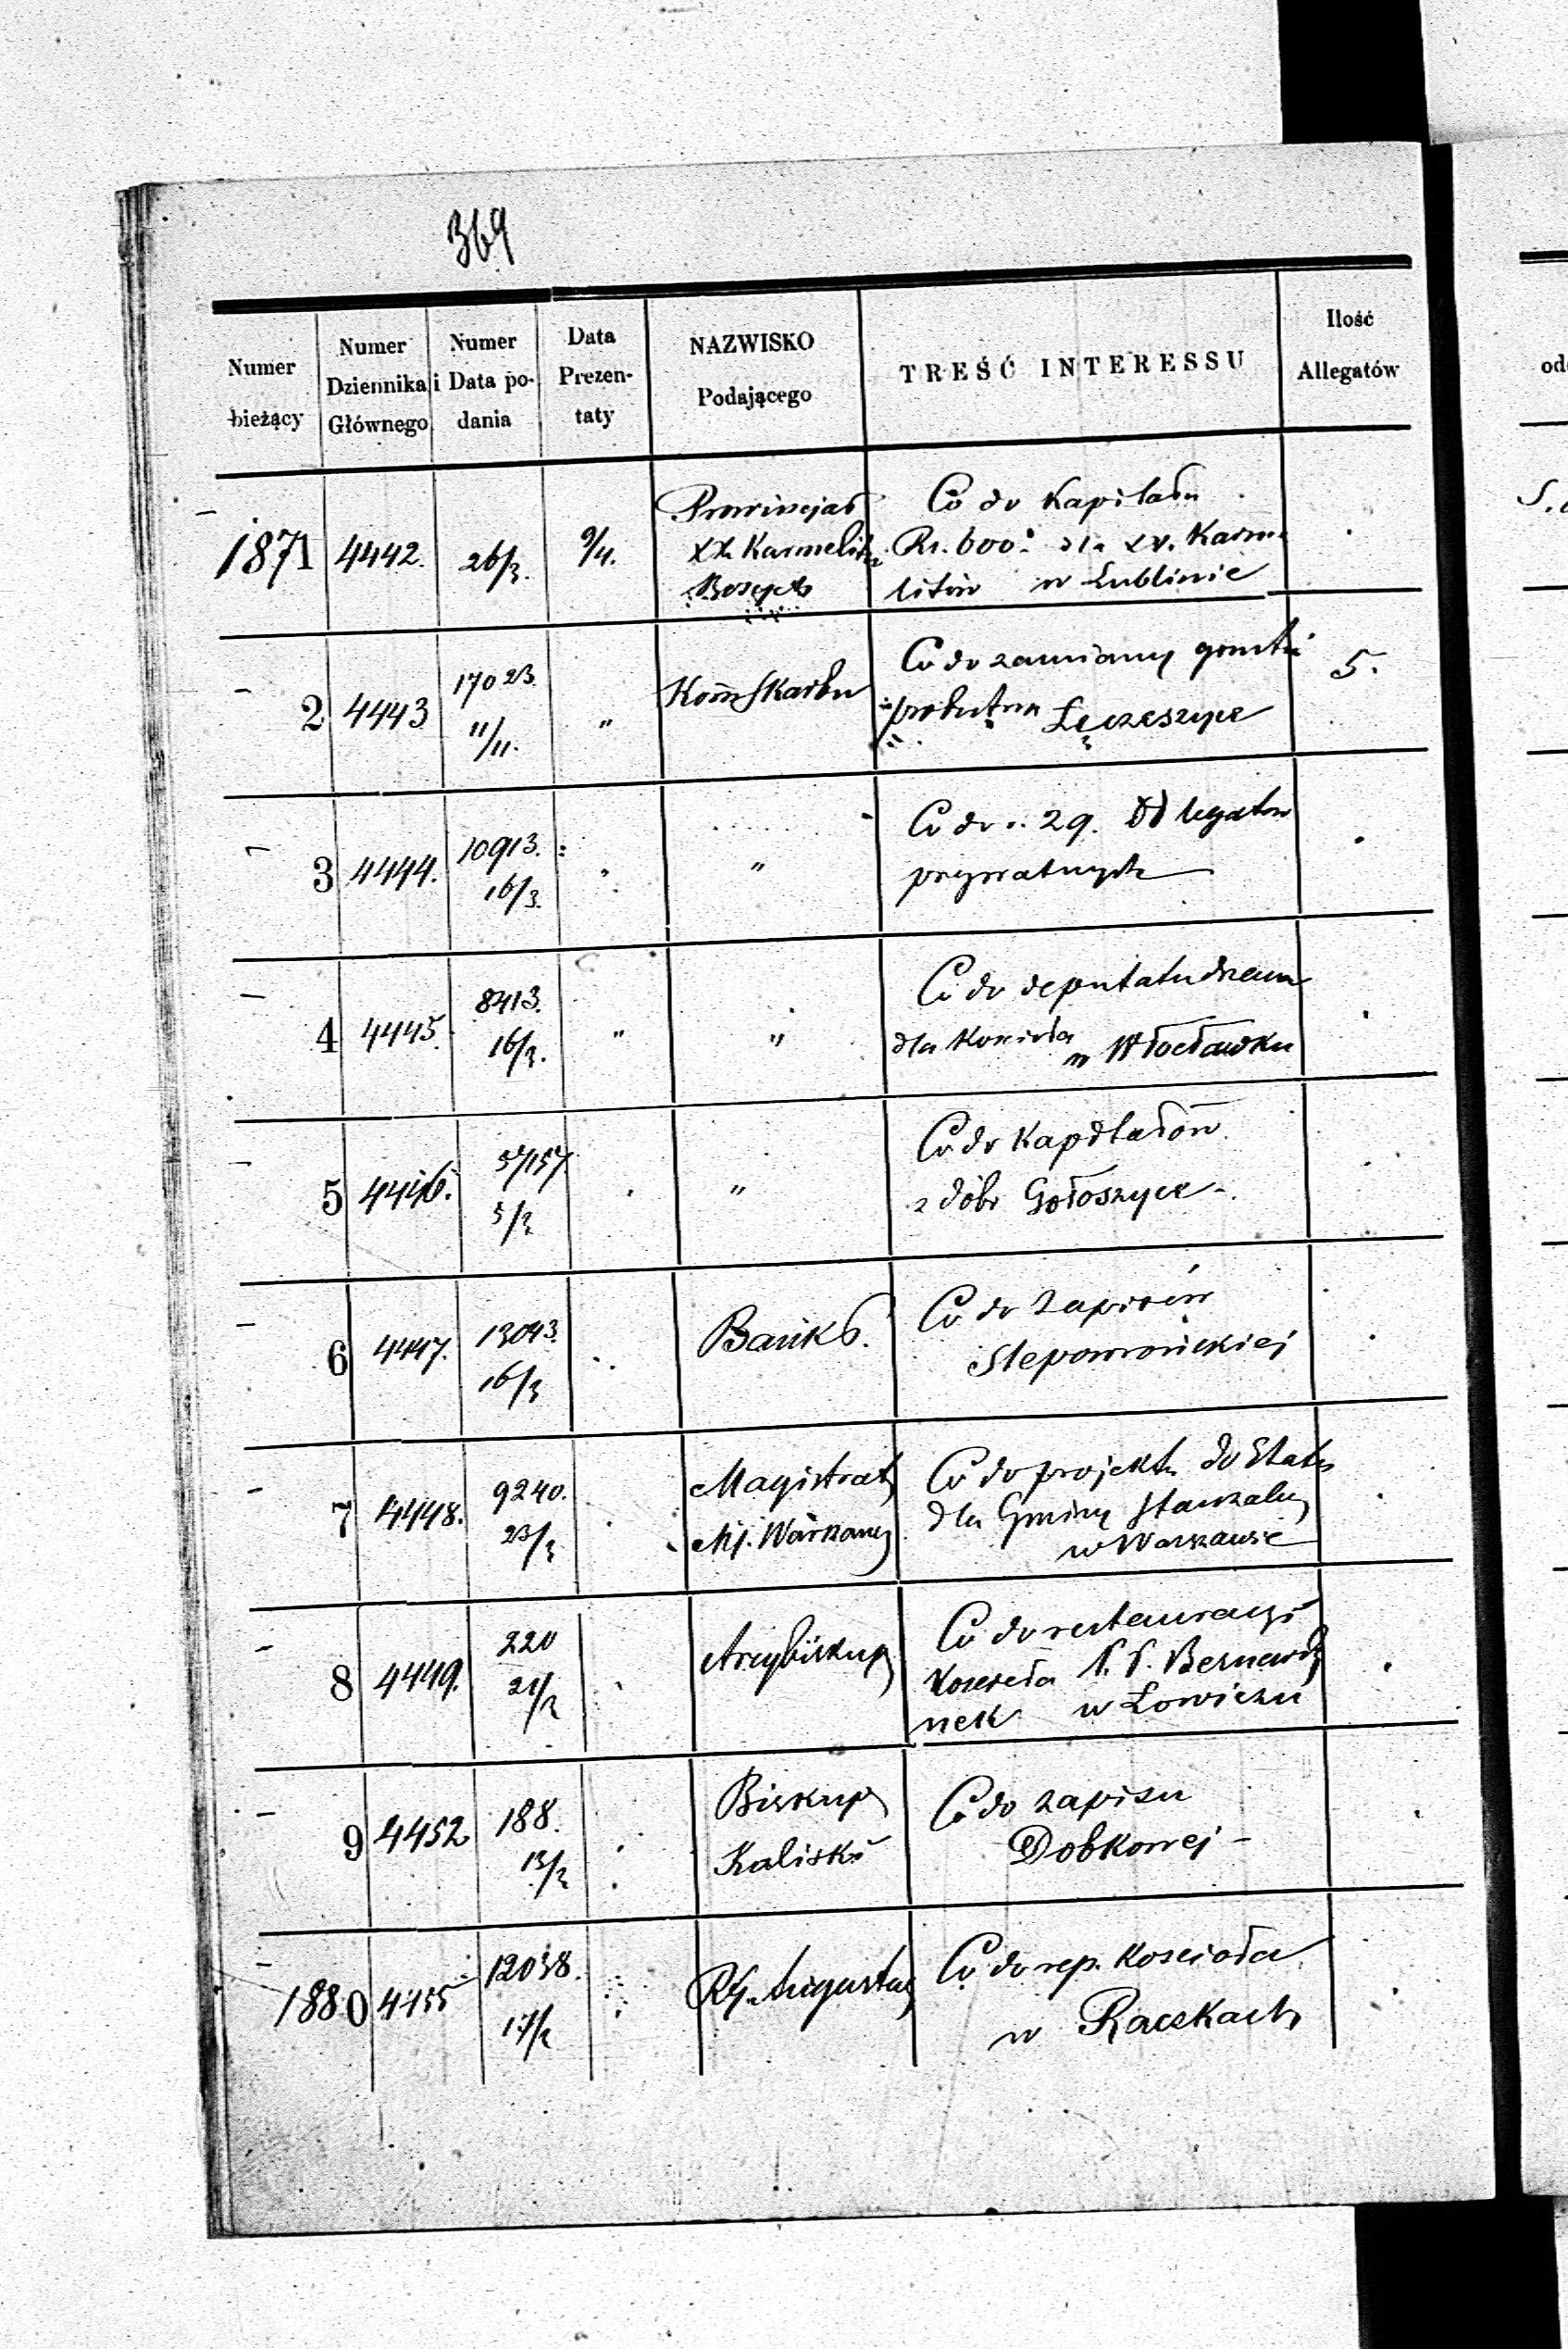 369
Numer bieżący
Numer Dziennika Głównego
Numer i Data podania
Data Prezentaty
NAZWISKO Podającego
TREŚĆ INTERESSU
Ilość Allegatów
1871 4442. 26/3. 9/4. Prowincjał Co do Kapitału
XX. Karmelitów Rs. 600 dla XX. Karme
Bosych litów w Lublinie
2 4443 17023. 11/11. " Kom Skarbu Co do zamiany gruntu 5.
Łęczeszyce
3 4444. 10913. 16/3. " " Co do 29. legatów
prywatnych
4 4445. 8413. 16/3. " " Co do deputatu drzewa
dla Kościoła w Włocławku
5 4446. 57157. 5/3 " Co do Kapitałów
z dóbr Gołoszyce
6 4447. 13043. 16/3 Bank P. Co do zapisów
Stepowrońskiej
7 4448. 9240. 23/3 Magistrat Co do projektu do Etatu
M. Warszawy dla Gminy Starzak
w Warszawie
8 4449. 220 21/3 Arcybiskup Co do restauracyi
Kościoła P. P. Bernardy
nek w Łowiczu
9 4452 188. 13/3 Biskup Co do zapisu
Kaliski Dobkowej
1880 4455 12038. 17/3 RG. Augustow Co do rep. Kościoła
w Raczkach